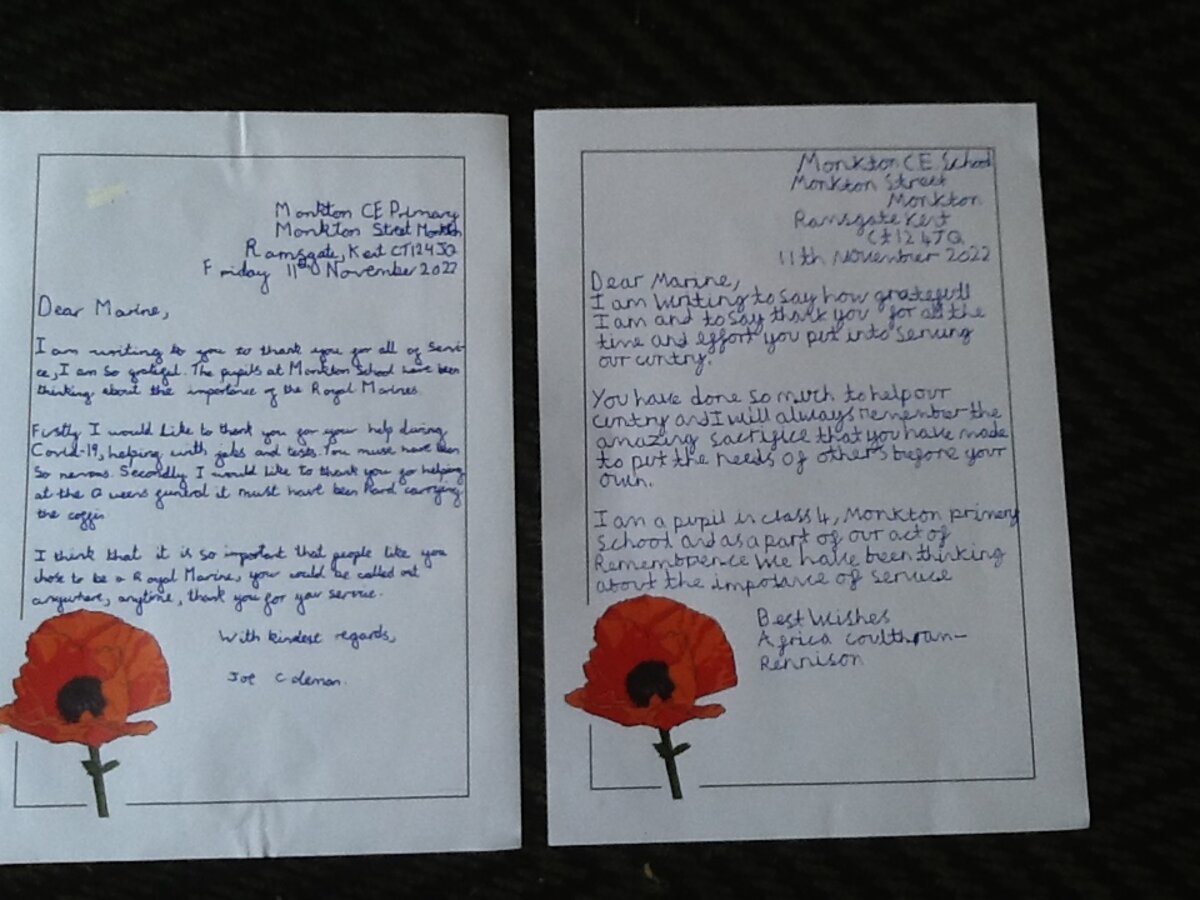 Monkton CE Primary
Monkton Street Monkton
Ramsgate, Kent CT12 4JQ
Friday 11th November 2022
Dear Marine,
I am writing to you to thank you for all of servi-
ce, I am so grateful. The pupils at Monkton School have been
thinking about the importance of the Royal Marines.
Firstly I would like to thank you for your help during
Covid-19, helping with jabs and tests. You must have been
so nervous. Secondly I would like to thank you for helping
at the Queens funeral it must have been hard carrying
the coffin
I think that it is so important that people like you
chose to be a Royal Marine, you could be called out
anywhere, anytime, thank you for your service.
With kindest regards,
Joe Coleman.
Monkton CE School
Monkton Street
Monkton
Ramsgate Kent
Ct12 4JQ
11th November 2022
Dear Marine,
I am writing to say how gratefull
I am and to say thank you for all the
time and effort you put into serving
our cuntry.
You have done so much to help our
cuntry and I will always remember the
amazing sacrifice that you have made
to put the needs of others before your
own.
I am a pupil in class 4, Monkton primery
School and as a part of our act of
Remembrence we have been thinking
about the impotance of service
Best Wishes
Africa Coulthran-
Rennison